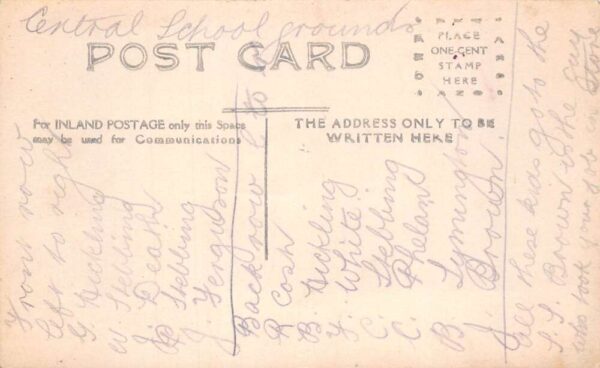 Central School grounds
POST CARD
PLACE
ONE CENT
STAMP
HERE
For INLAND POSTAGE only this Space
may be used for Communications
THE ADDRESS ONLY TO BE
WRITTEN HERE
Front row
left to right
G Hickling
W Stebbing
J. Death
P. Stebbing
J. Ferguson
Back row L to R
R Cosh
B. Hickling
F. White
C. Stebbing
C. Phelan
B. Lymington
J. Brown.
All these kids go to the
S.S. Brown is the guy
who took your job in Store